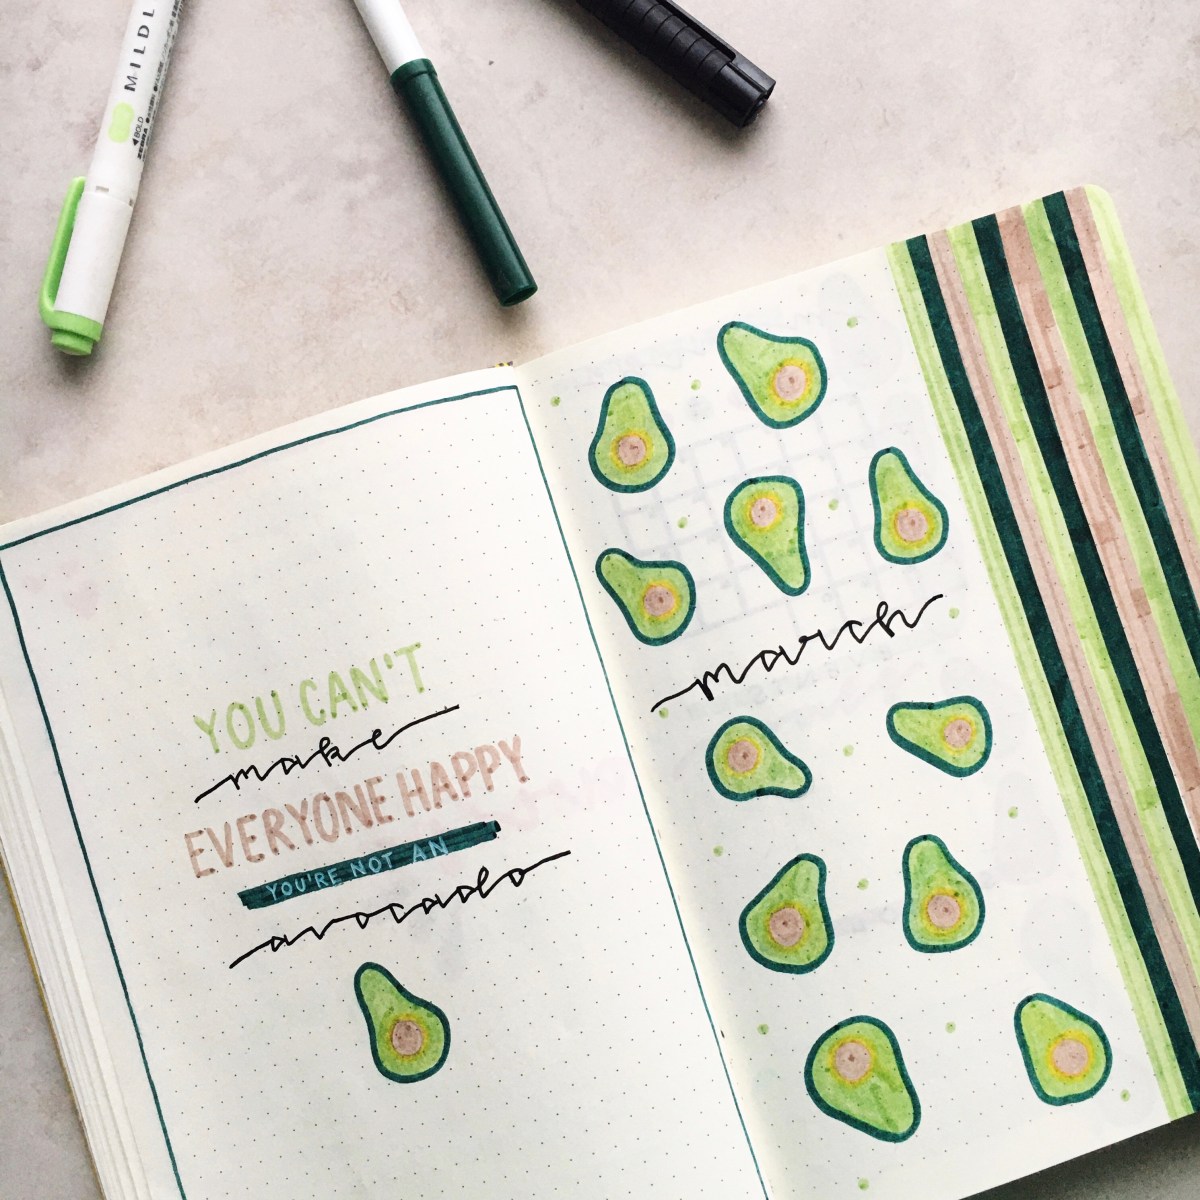 MILDL
BOLD
ZEBRA
YOU CAN'T
make
EVERYONE HAPPY
YOU'RE NOT AN
avocado
march